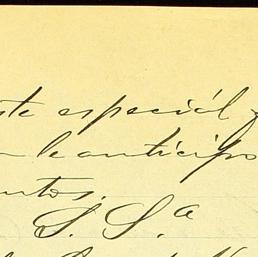 ste especiál
le anticipo
ntos.
S. S.ª